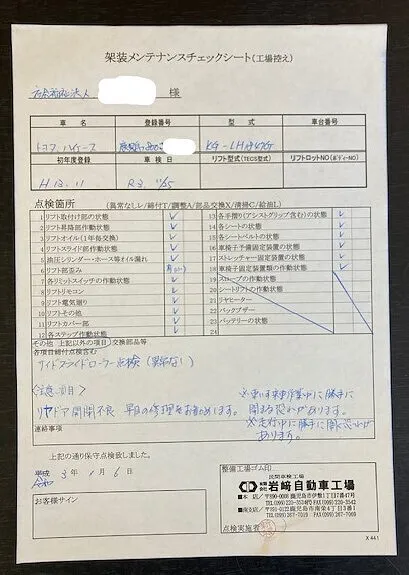 架装メンテナンスチェックシート(工場控え)
社会福祉法人 様
車名 登録番号 型式 車台番号
トヨタ ハイエース 鹿児島 800 KG-LH
初年度登録 車検日 リフト型式(TECS型式) リフトロットNO(ボディーNO)
H.13.11 R.3. 11/25
点検箇所 (異常なしレ/締付T/調整A/部品交換X/清掃C/給油L)
1 リフト取付け部の状態 レ 13 各手摺り(アシストグリップ含む)の状態 レ
2 リフト昇降部作動状態 レ 14 各シートの状態 レ
3 リフトオイル(1年毎交換) レ 15 各シートベルトの状態 レ
4 リフトスライド部作動状態 レ 16 車椅子予備固定装置の状態 レ
5 油圧シリンダー・ホース等オイル漏れ レ 17 ストレッチャー固定装置の状態 レ
6 リフト部歪み 18 車椅子固定装置類の作動状態 レ
7 各リミットスイッチの作動状態 レ 19 スロープの作動状態
8 リフトリモコン レ 20 シートリフトの作動状態
9 リフト電気廻り レ 21 リヤヒーター
10 リフトその他 レ 22 バックブザー
11 リフトカバー部 レ 23 バッテリーの状態
12 各ステップ作動状態 レ 24
その他 上記以外の項目)交換部品等
各項目締付点検含む
サイドスライドローラー点検(異常なし)
注意項目
リヤドア開閉不良 早目の修理をお勧めします。
※車いす乗降作業中に勝手に
閉まる恐れがあります。
※走行中に勝手に開く恐れが
あります。
連絡事項
上記の通り保守点検致しました。
平成 令和 3年 月 6日
お客様サイン
整備工場ゴム印
民間車検工場
有限会社 岩﨑自動車工場
■本 店/〒890-0008 鹿児島市伊敷1丁目7番47号
■南支店/〒891-0122 鹿児島市南栄4丁目3番1
点検実施者
X 441